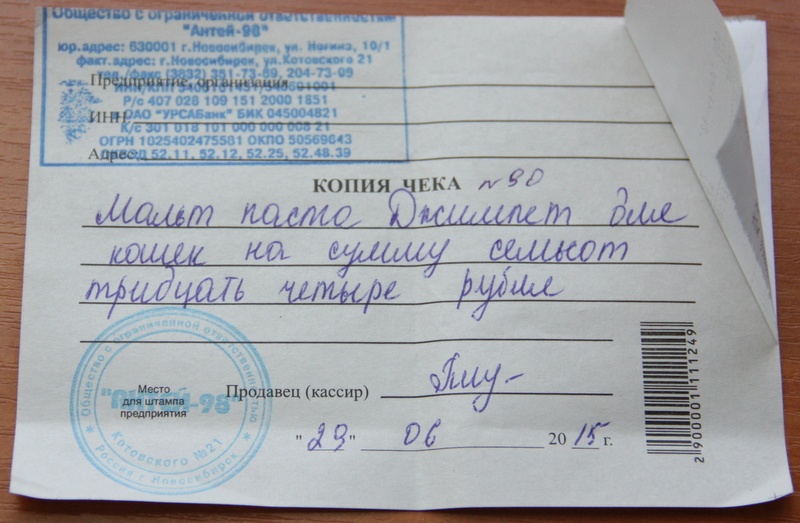 Общество с ограниченной ответственностью
"Антей-98"
юр.адрес: 630001 г.Новосибирск, ул. Ногина, 10/1
факт.адрес: г.Новосибирск, ул.Котовского 21
тел./факс (3832) 351-73-69, 204-73-09
Предприятие, организация
ИНН/КПП
Р/с 407 028 109 151 2000 1851
ИНН
в ОАО "УРСАБанк" БИК 045004821
К/с 301 018 101 000 000 008 21
ОГРН 1025402475581 ОКПО 50569643
Адрес:
ОКВЭД 52.11, 52.12, 52.25, 52.48.39
КОПИЯ ЧЕКА №90
Мальт паста Джимпет для
кошек на сумму семьсот
тридцать четыре рубля
Продавец (кассир)
Место
для штампа
предприятия
Общество с ограниченной ответственностью
"АНТЕЙ-98"
Котовского №21
Россия г Новосибирск
"29" 06 2015 г.
2 900001 111249